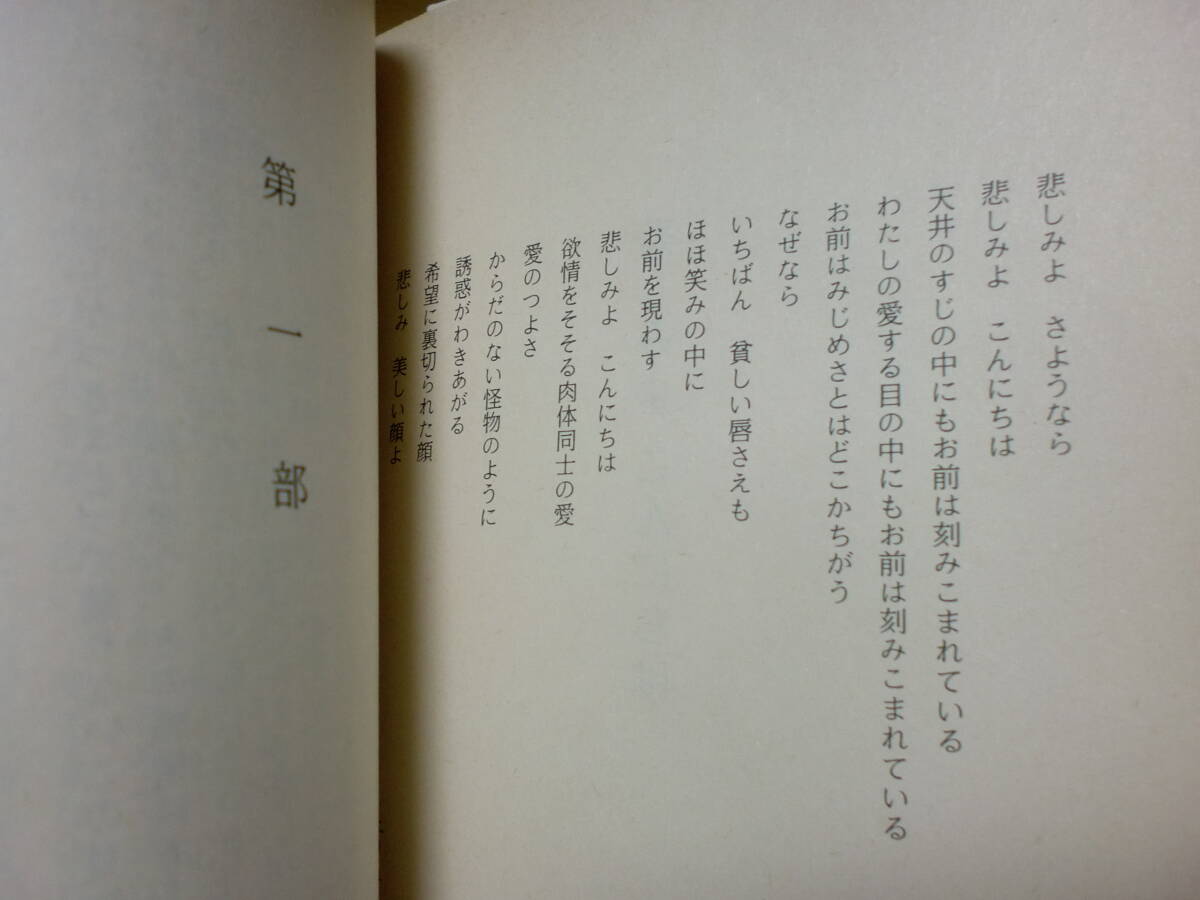 悲しみよ　さようなら
悲しみよ　こんにちは
天井のすじの中にもお前は刻みこまれている
わたしの愛する目の中にもお前は刻みこまれている
お前はみじめさとはどこかちがう
なぜなら
いちばん　貧しい唇さえも
ほほ笑みの中に
お前を現わす
悲しみよ　こんにちは
欲情をそそる肉体同士の愛
愛のつよさ
からだのない怪物のように
誘惑がわきあがる
希望に裏切られた顔
悲しみ　美しい顔よ
第一部